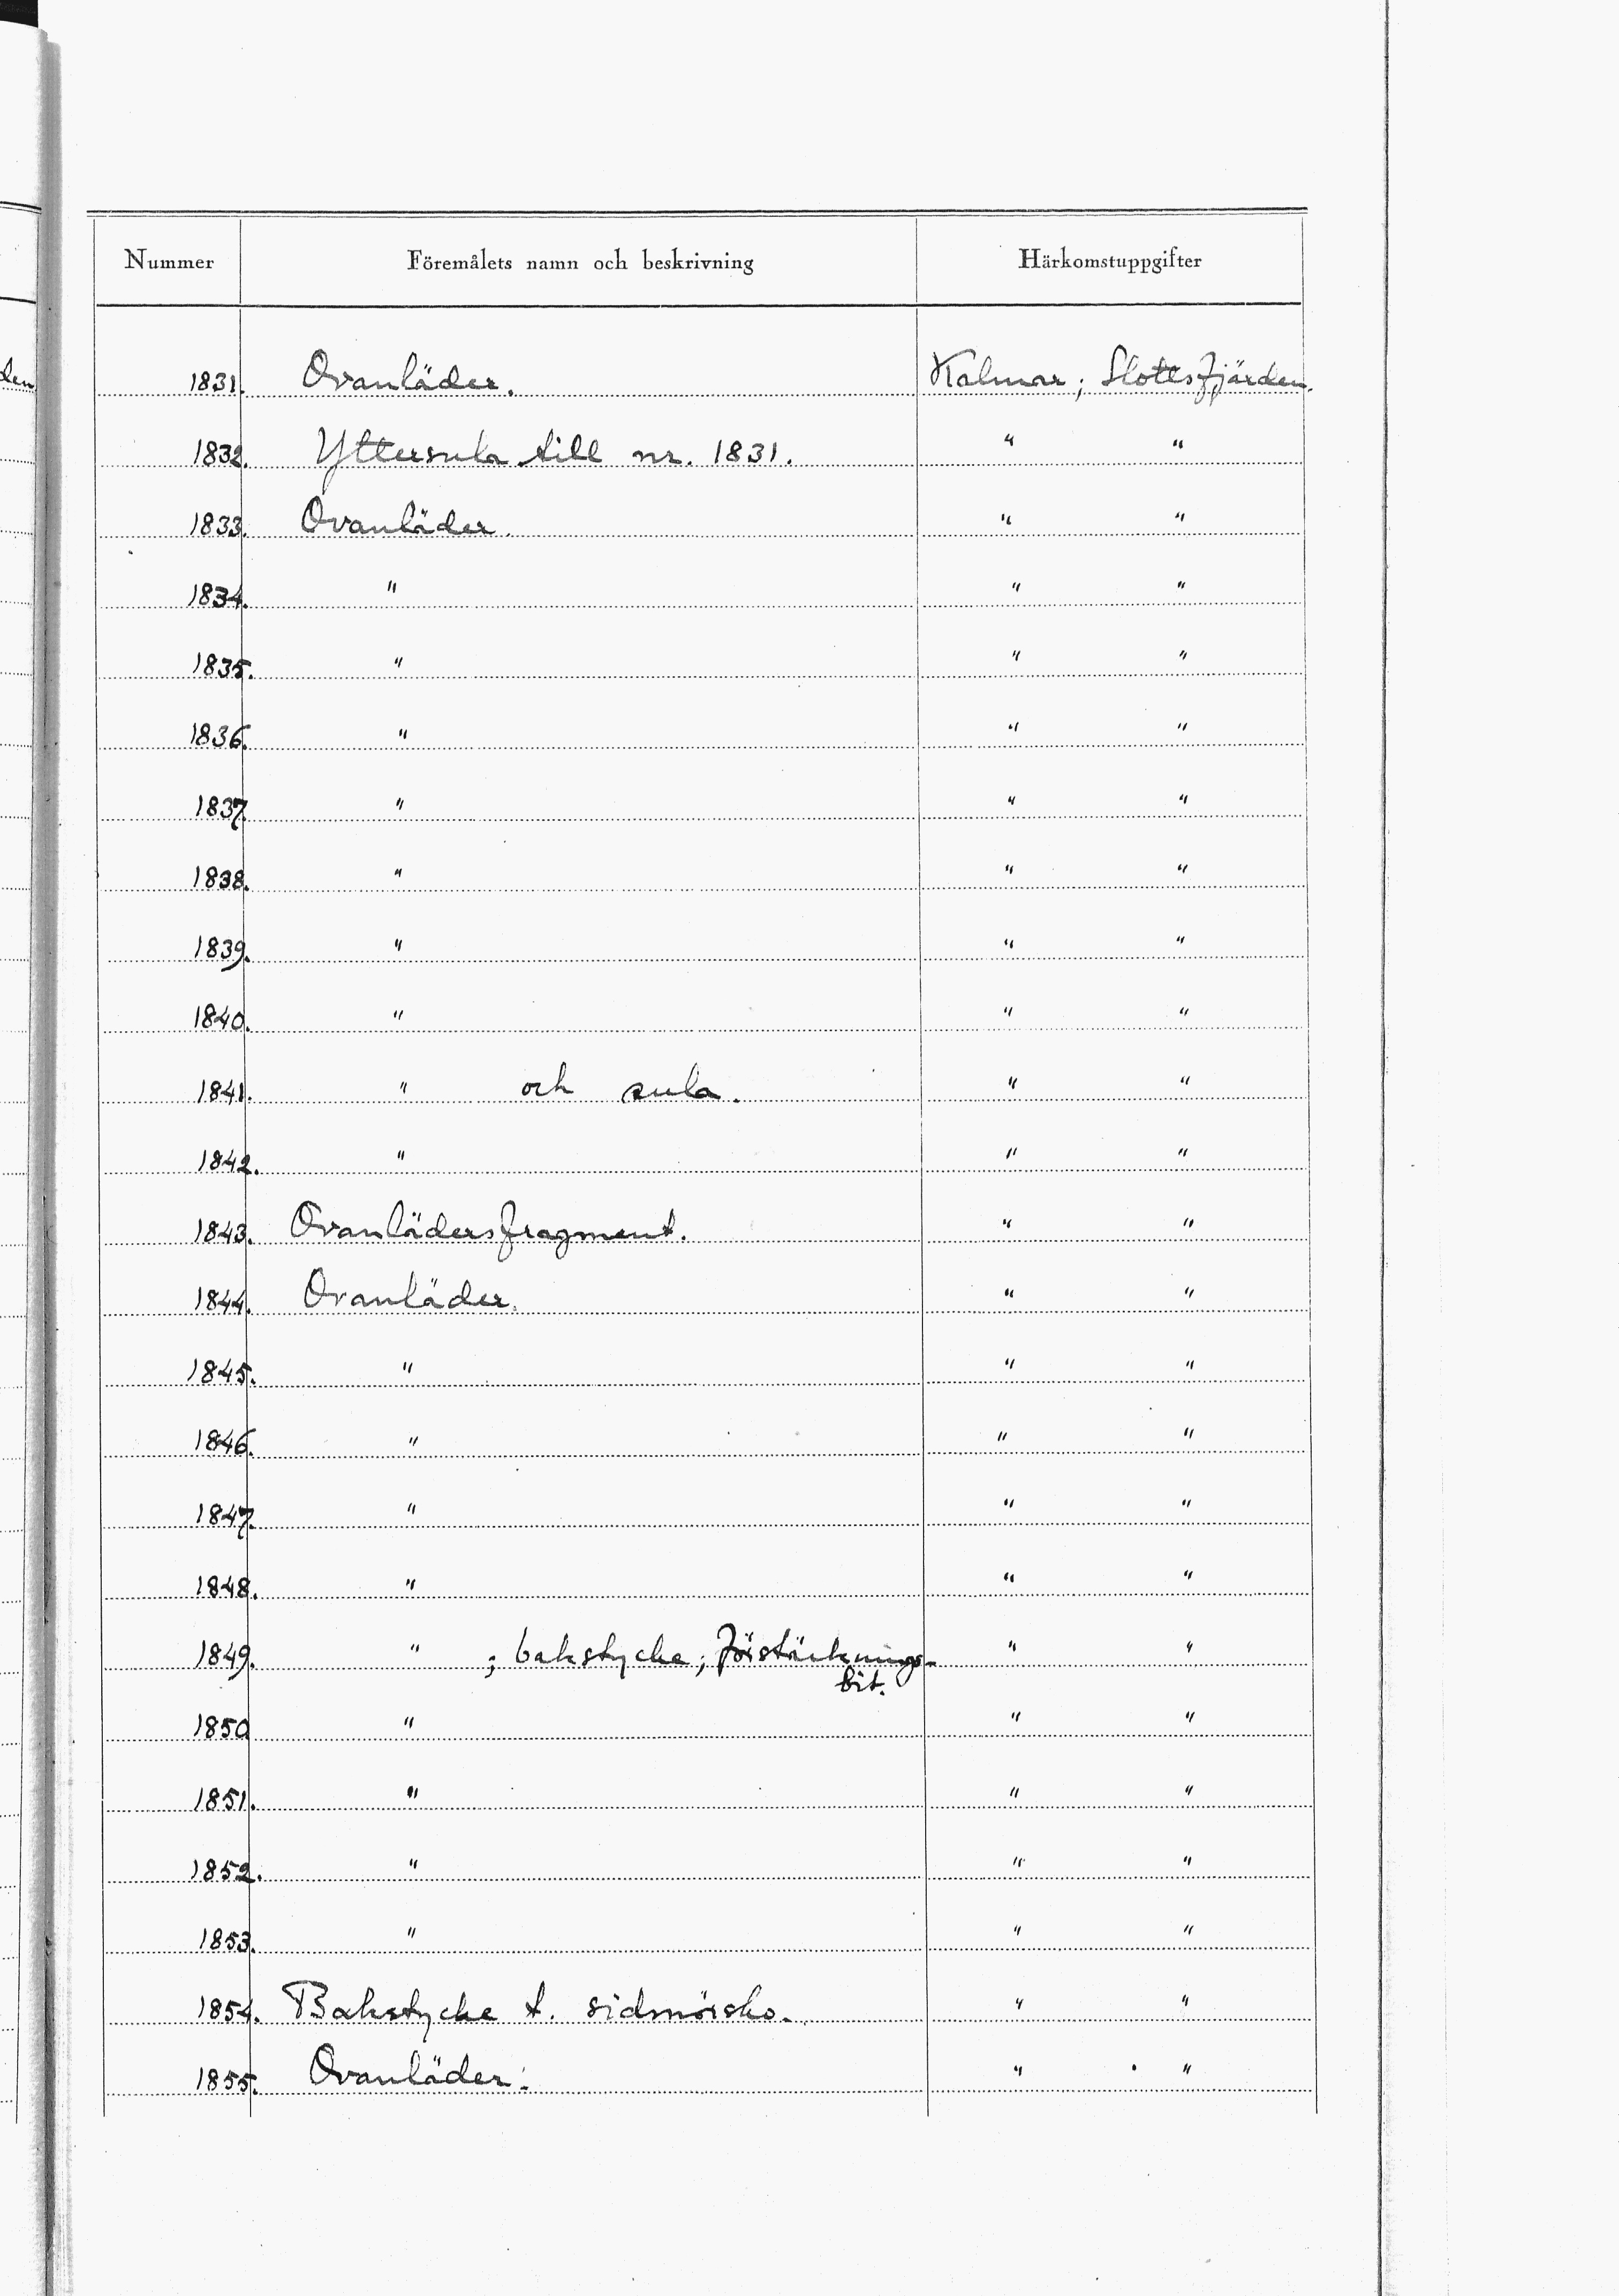 den
Nummer Föremålets namn och beskrivning Härkomstuppgifter
1831. Ovanläder. Kalmar; Slottsfjärden.
1832. Yttersula till nr. 1831. " "
1833. Ovanläder. " "
1834. " " "
1835. " " "
1836. " " "
1837. " " "
1838. " " "
1839. " " "
1840. " " "
1841. " och sula. " "
1842. " " "
1843. Ovanlädersfragment. " "
1844. Ovanläder. " "
1845. " " "
1846. " " "
1847. " " "
1848. " " "
1849. " ; bakstycke; förstärknings- " "
bit.
1850 " " "
1851. " " "
1852. " " "
1853. " " "
1854. Bakstycke t. sidsnörsko. " "
1855. Ovanläder. " "